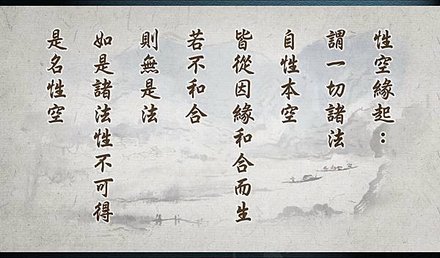 性空緣起：
謂一切諸法
自性本空
皆從因緣和合而生
若不和合
則無是法
如是諸法性不可得
是名性空